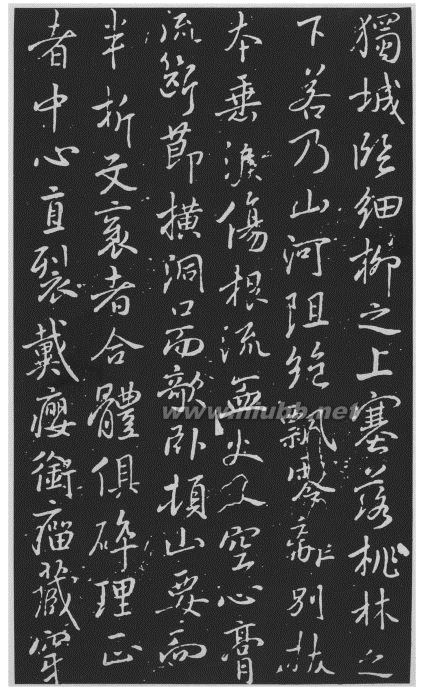 獨城臨細柳之上塞落桃林之
下若乃山河阻絕飄零離別拔
本垂淚傷根流血火入空心膏
流斷節橫洞口而敧臥頓山要而
半折文袤者合體俱碎理正
者中心直裂戴癭銜瘤藏穿
www.niubb.net